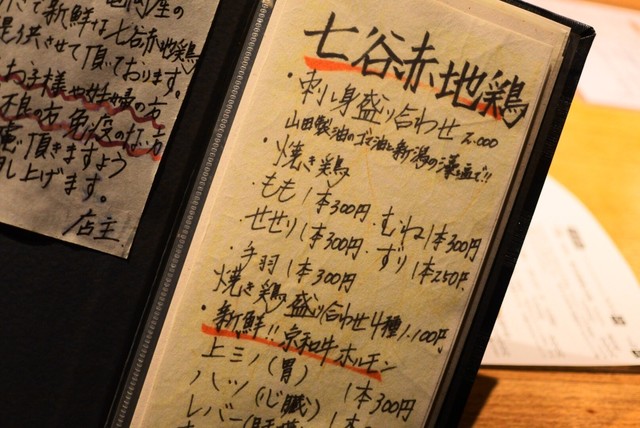 新鮮な七谷赤地鶏
提供させて頂ております。
お子様や妊婦の方
不良の方 免疫のない方
頂きますよう
し上げます。
店主
七谷赤地鶏
・刺し身盛り合わせ 2.000
山田製油のゴマ油と新潟の藻塩で!!
・焼き鶏
・もも1本300円 ・むね1本300円
・せせり1本300円 ・ずり1本250円
・手羽1本300円
焼き鶏盛り合わせ4種1.100円
・新鮮!!京和牛ホルモン
上ミノ(胃)
ハツ(心臓) 1本300円
レバー